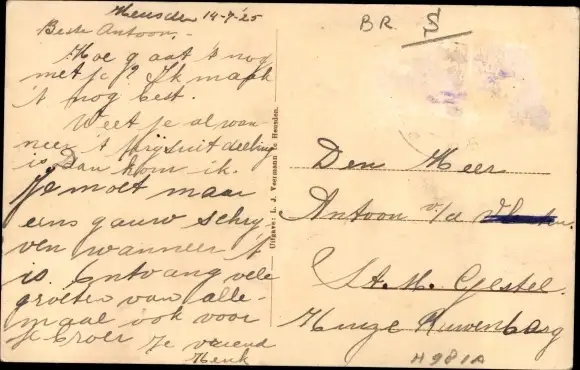 Heusden 14-7-'25
Beste Antoon.-
Hoe gaat 't nog
met je? Ik maak
't nog best.
Weet je al wan
neer 't prijsuitdeeling
is Dan kom ik.
Je moet maar
eens gauw schrij
ven wanneer 't
is. Ontvang vele
groeten van alle-
maal ook voor
je broer Je vriend
Henk
Uitgave: L. J. Veermann te Heusden.
BR.
Den Heer
Antoon v/d
St. M. Gestel.
Huize Ruwenberg
H981A